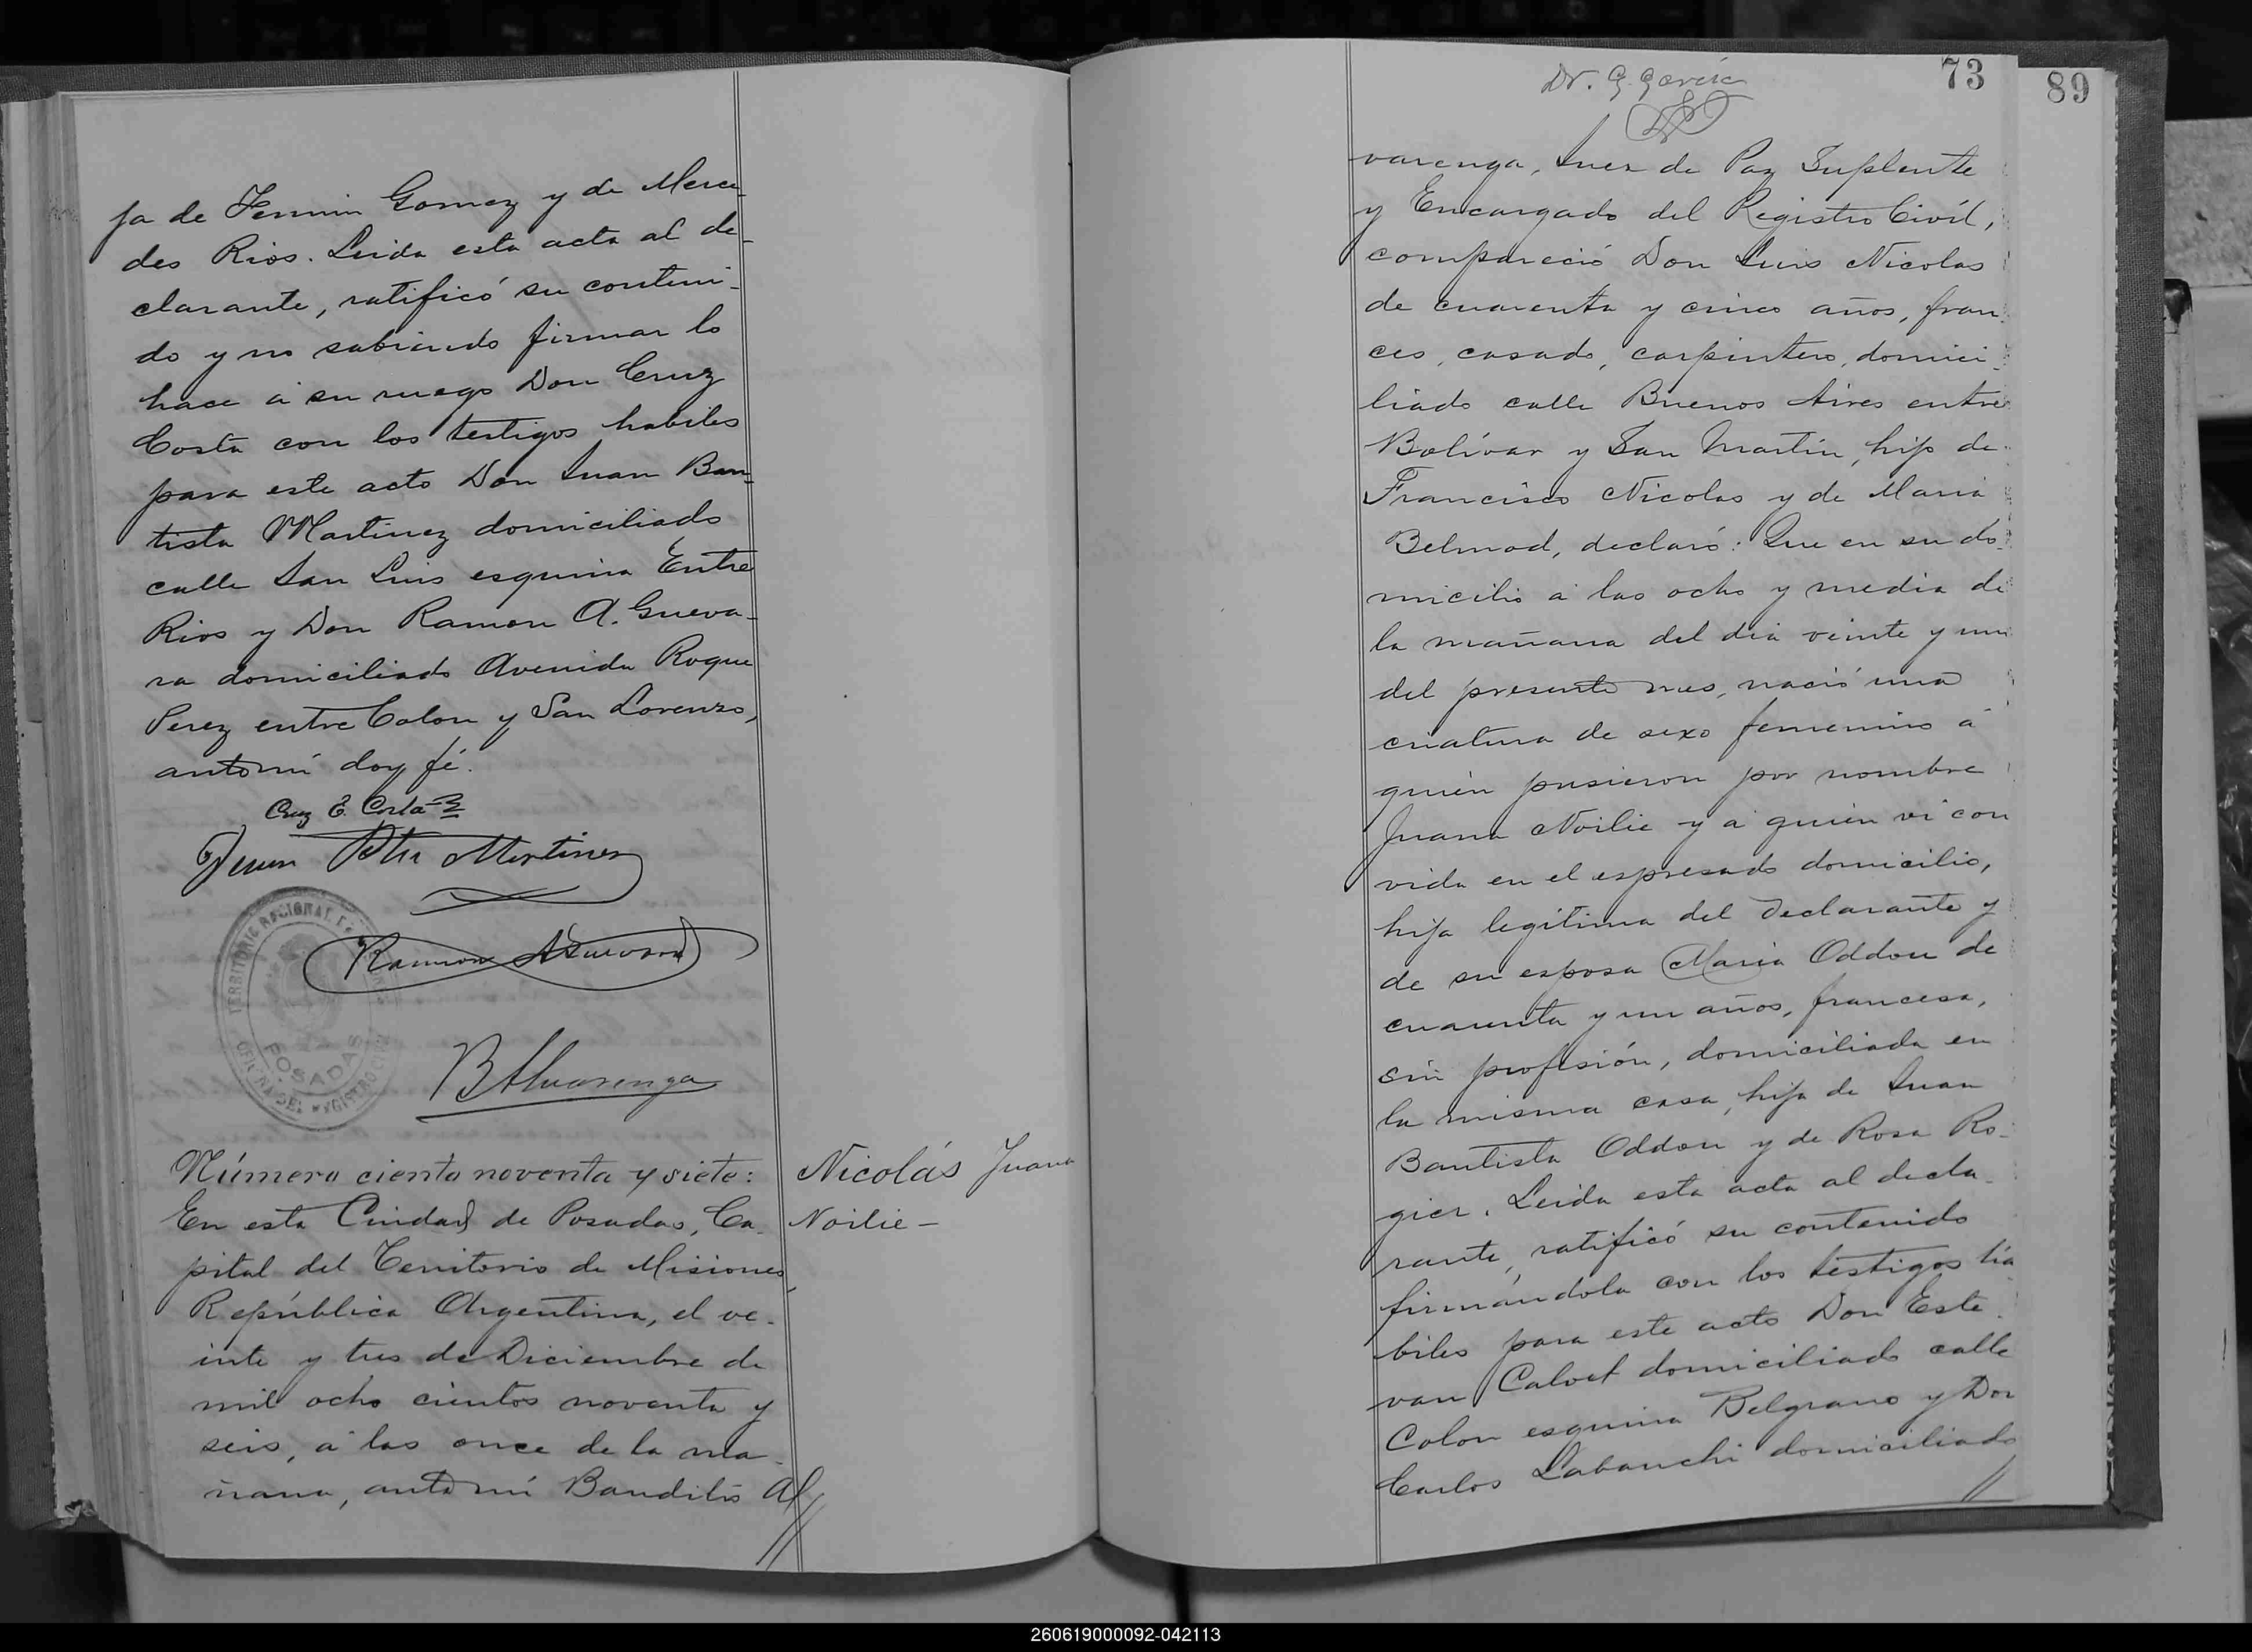 ja de Fermin Gomez y de Merce-
des Rios. Leida esta acta al de-
clarante, ratificó su conteni-
do y no sabiendo firmar lo
hace á su ruego Don Cruz
Costa con los testigos habiles
para este acto Don Juan Bau-
tista Martinez domiciliado
calle San Luis esquina Entre
Rios y Don Ramon A. Gueva-
ra domiciliado Avenida Roque
Perez entre Colon y San Lorenzo,
antemi doy fé.
Cruz E. Costa
Juan Bta Martinez
Ramon A Guevara
TERRITORIO NACIONAL
POSADAS
OFICINA DEL REGISTRO CIVIL
B Alvarenga
Número ciento noventa y siete:
En esta Ciudad de Posadas, Ca-
pital del Territorio de Misiones,
República Argentina, el ve-
inte y tres de Diciembre de
mil ocho cientos noventa y
seis, á las once de la ma-
ñana, antemí Bandilio Al
Nicolás Juana
Noilie -
Dr. G. García
73
89
varenga, Juez de Paz Suplente
y Encargado del Registro Civíl,
compareció Don Luis Nicolas
de cuarenta y cinco años, fran-
ces, casado, carpintero, domici-
liado calle Buenos Aires entre
Bolívar y San Martín, hijo de
Francisco Nicolas y de Maria
Belmod, declaró: Que en su do-
micilio á las ocho y media de
la mañana del dia veinte y un
del presente mes, nació una
criatura de sexo femenino á
quién pusieron por nombre
Juana Noilie y á quién ví con
vida en el espresado domicilio,
hija legítima del declarante y
de su esposa Maria Oddon de
cuarenta y un años, francesa,
sin profesión, domiciliada en
la misma casa, hija de Juan
Bautista Oddon y de Rosa Ro-
gier. Leida esta acta al decla-
rante, ratificó su contenido
firmándola con los testigos há
biles para este acto Don Este-
van Calvet domiciliado calle
Colon esquina Belgrano y Don
Carlos Labanchi domiciliado
260619000092-042113